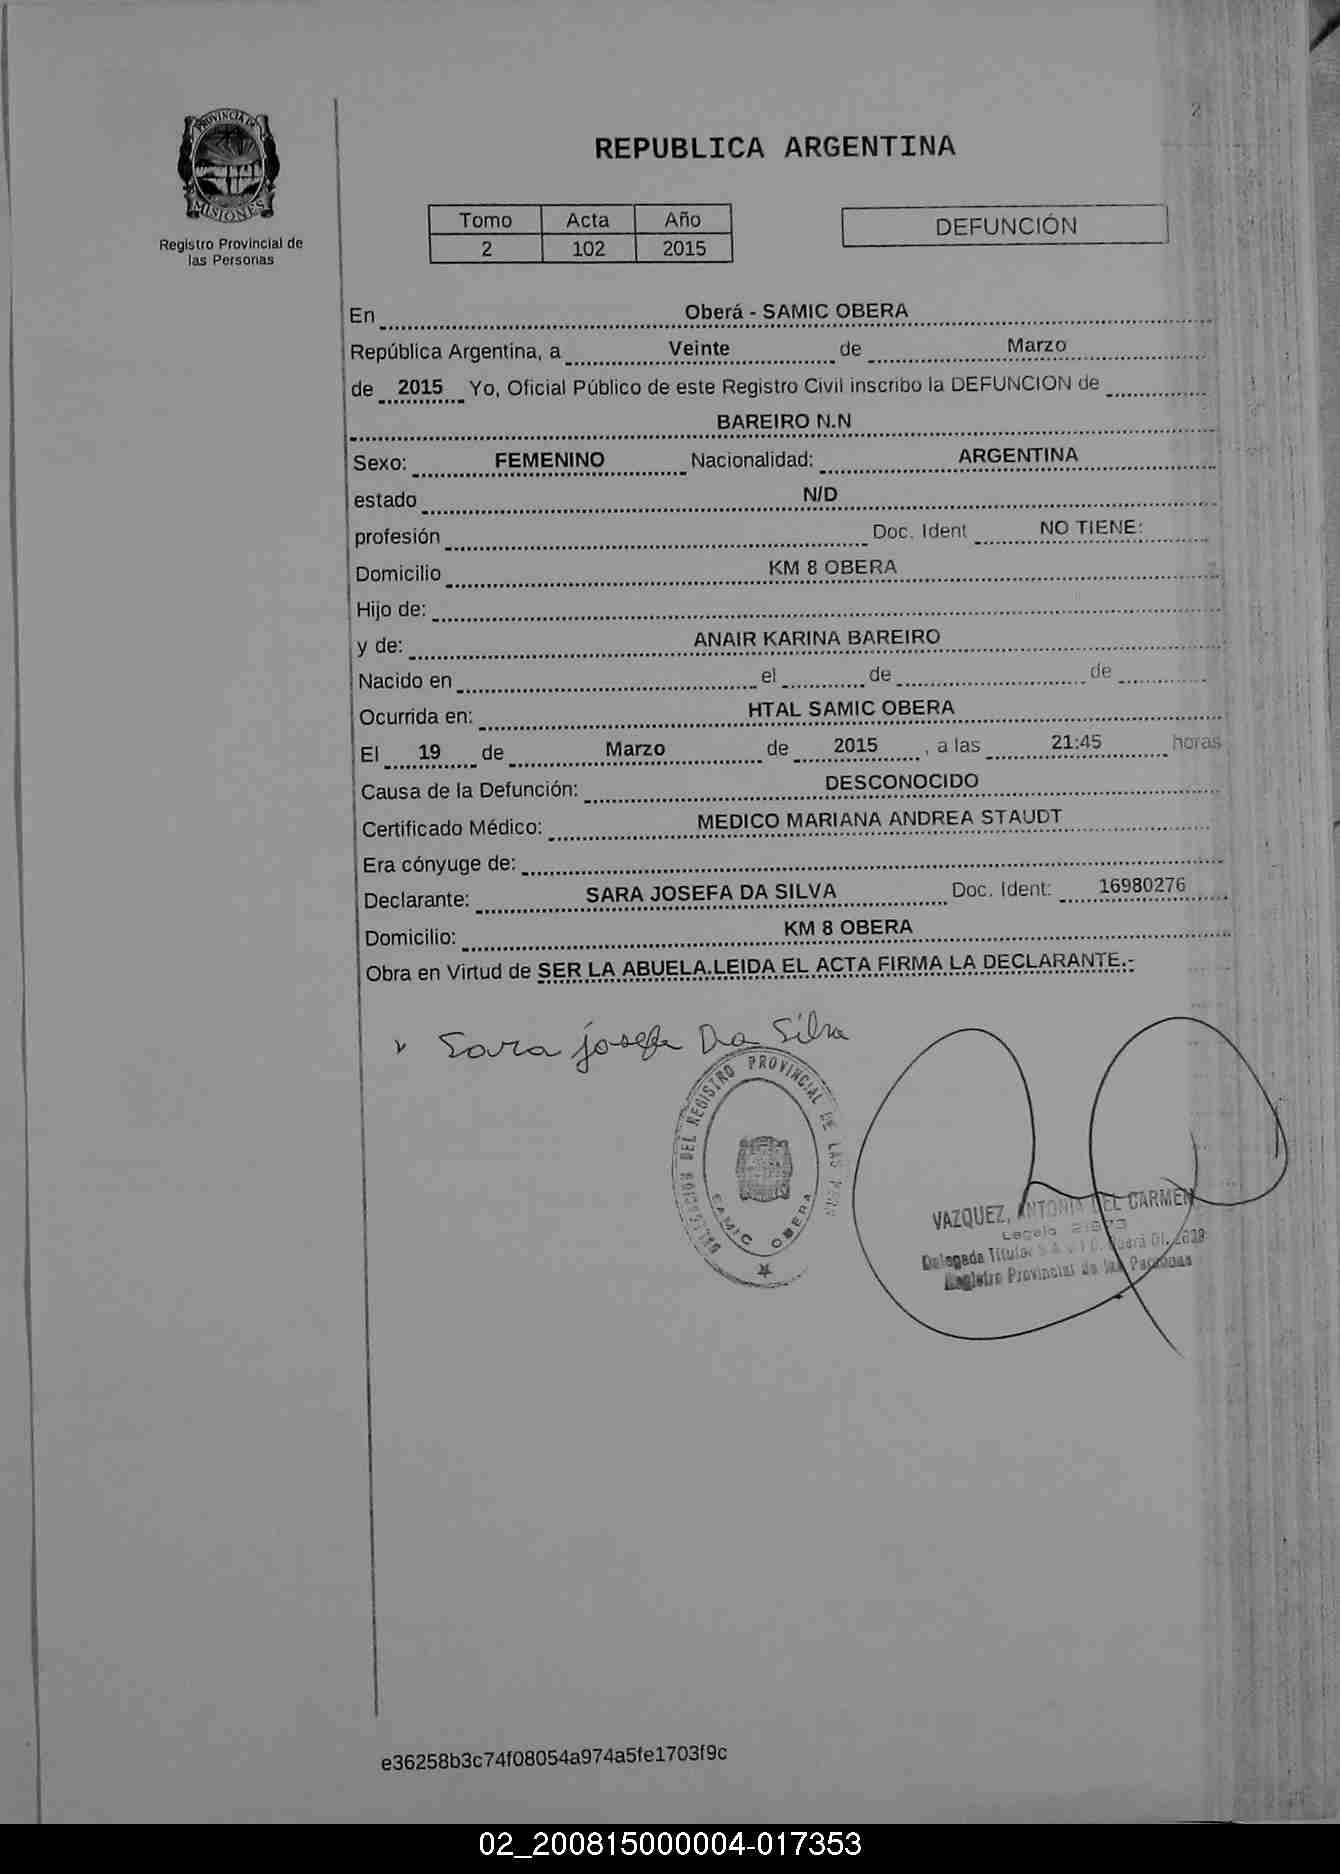 2
PROVINCIA DE
MISIONES
Registro Provincial de
las Personas
REPUBLICA ARGENTINA
Tomo Acta Año
2 102 2015
DEFUNCIÓN
En Oberá - SAMIC OBERA
República Argentina, a Veinte de Marzo
de 2015 Yo, Oficial Público de este Registro Civil inscribo la DEFUNCION de
BAREIRO N.N
Sexo: FEMENINO Nacionalidad: ARGENTINA
estado N/D
profesión Doc. Ident NO TIENE:
Domicilio KM 8 OBERA
Hijo de:
y de: ANAIR KARINA BAREIRO
Nacido en el de de
Ocurrida en: HTAL SAMIC OBERA
El 19 de Marzo de 2015 , a las 21:45 horas
Causa de la Defunción: DESCONOCIDO
Certificado Médico: MEDICO MARIANA ANDREA STAUDT
Era cónyuge de:
Declarante: SARA JOSEFA DA SILVA Doc. Ident: 16980276
Domicilio: KM 8 OBERA
Obra en Virtud de SER LA ABUELA.LEIDA EL ACTA FIRMA LA DECLARANTE.-
Sara josefa Da Silva
DEL REGISTRO PROVINCIAL DE LAS
SAMIC OBERA
VAZQUEZ, ANTONIA DEL CARMEN
Legajo
Delegada Titular
Registro Provincial de las Personas
e36258b3c74f08054a974a5fe1703f9c
02_200815000004-017353